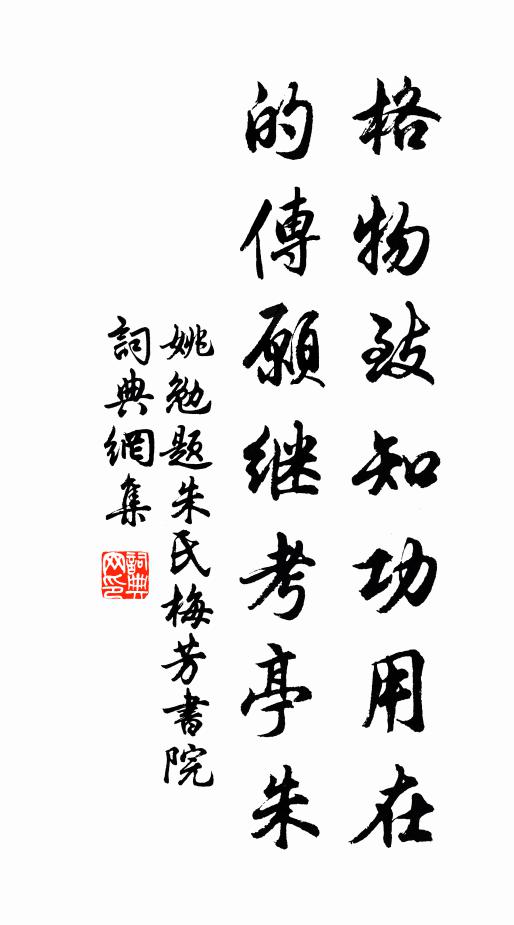 格物致知功用在
的傳願继考亭朱
姚勉题朱氏梅芳書院
詞典網集
詞典網印